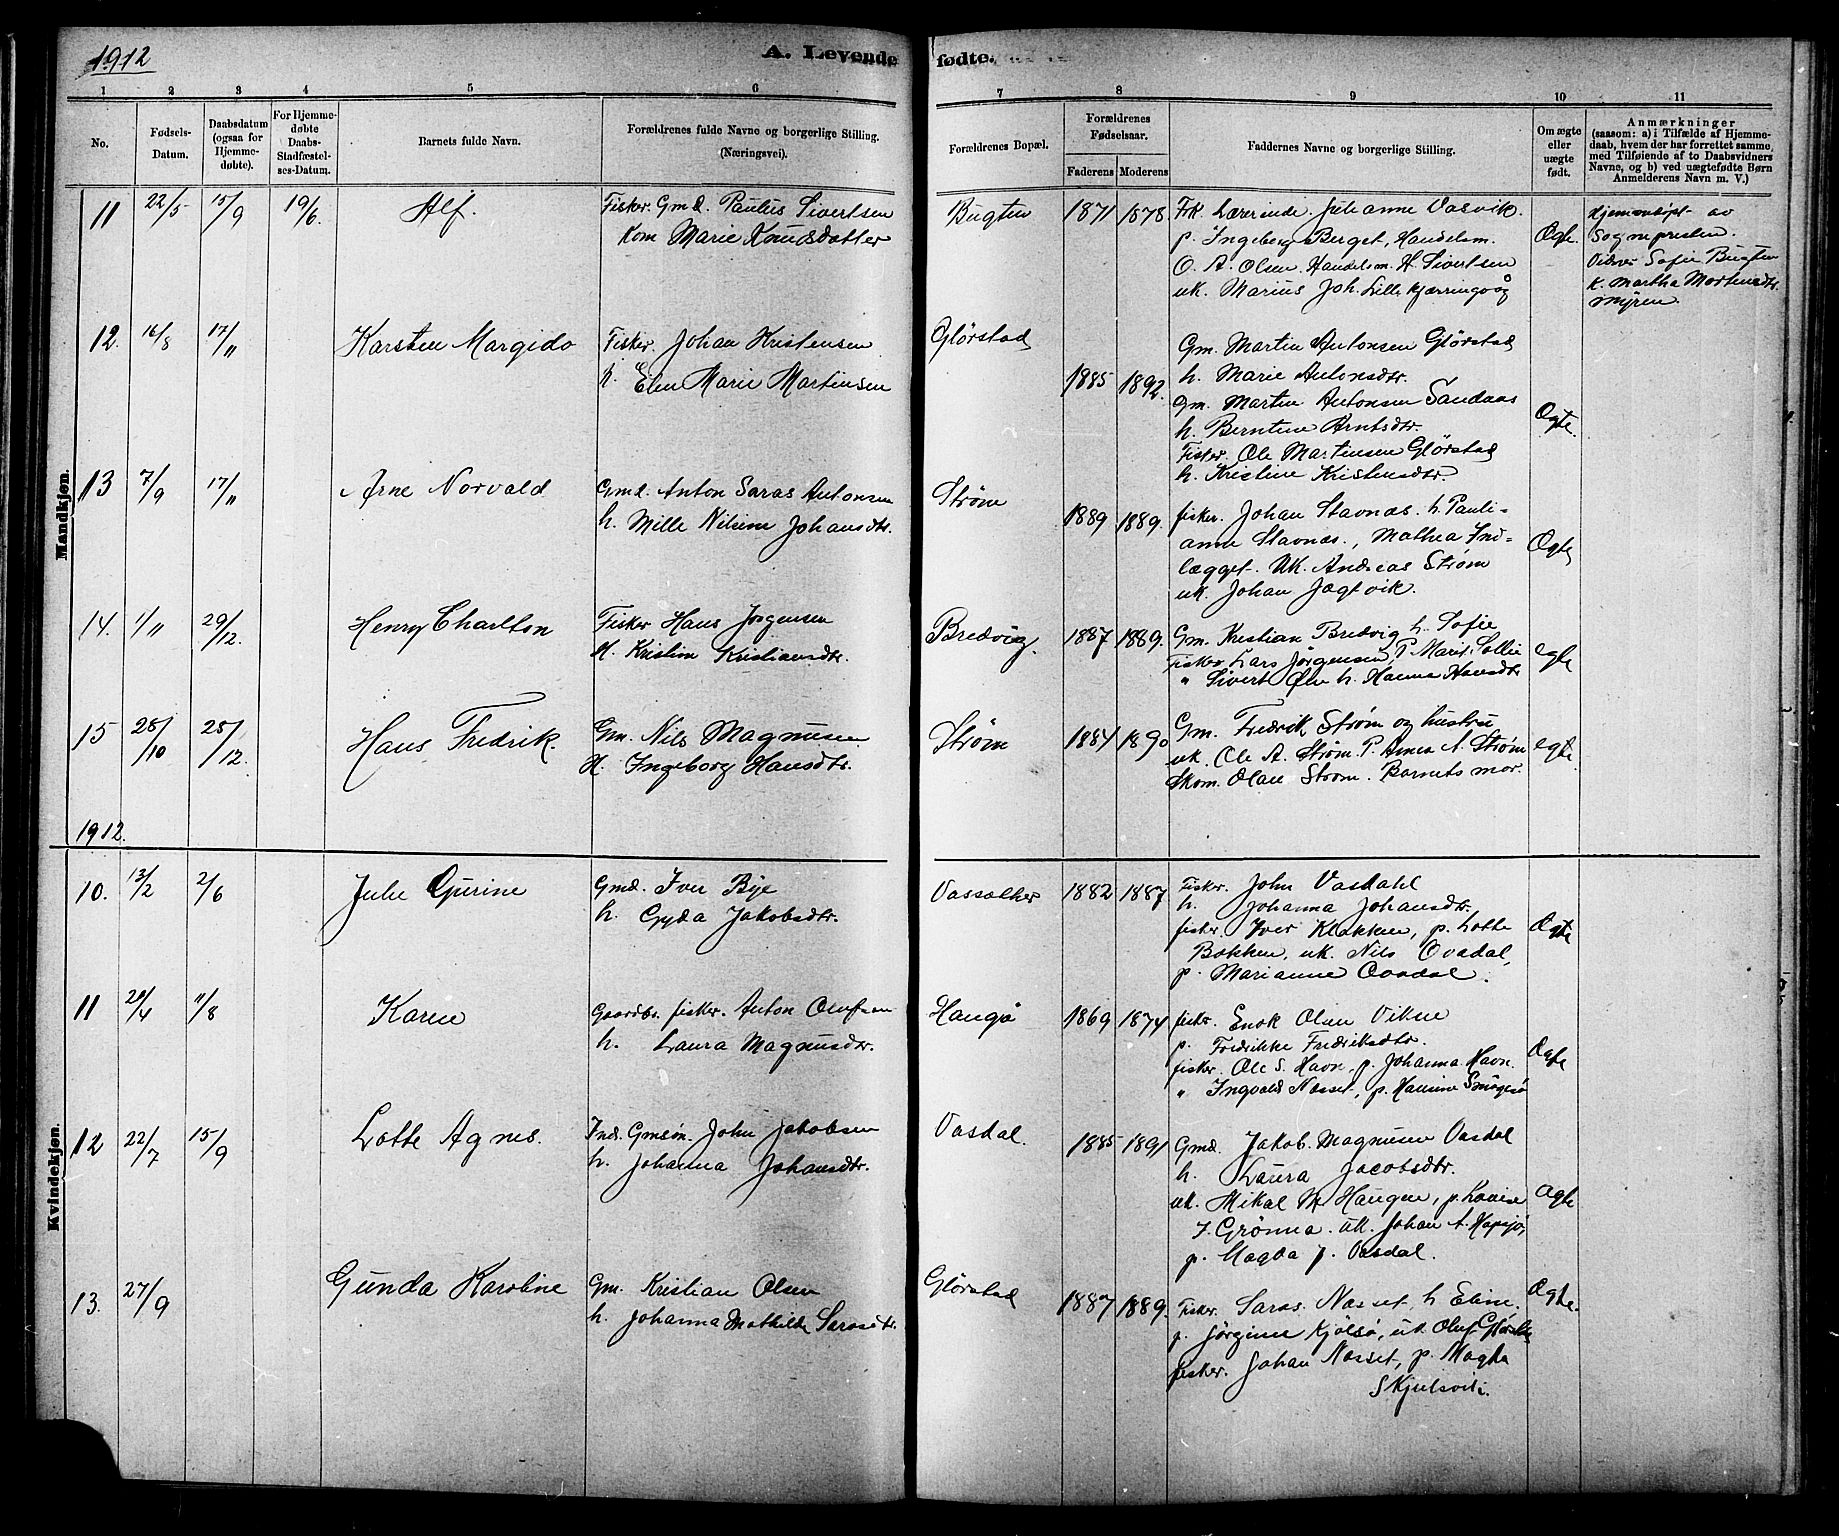 1912
A. Levende fødte.
1 2 3 4 5 6 7 8 9 10 11
No.
Fødsels-Datum.
Daabsdatum (ogsaa for Hjemmedøbte).
For Hjemmedøbte Daabs-Stadfæstelses-Datum.
Barnets fulde Navn.
Forældrenes fulde Navne og borgerlige Stilling.
(Næringsvei).
Forældrenes Bopæl.
Forældrenes Fødselsaar.
Faderens Moderens
Faddernes Navne og borgerlige Stilling.
Om ægte eller uægte født.
Anmærkninger
(saasom: a) i Tilfælde af Hjemmedaab, hvem der har forrettet samme, med Tilføiende af to Daabsvidners Navne, og b) ved uægtefødte Børn Anmelderens Navn m. V.)
Mandkjøn.
11 22/5 15/9 19/6. Alf. Fisker. Gmd. Paulus Sivertsen
Kone Marie Knudsdatter
Bugten 1871 1878 Frk. Lærerinde. Johanne Vasvik.
p. Ingeborg Berget, Handelsm.
O. A. Olsen. Handelsm. H. Sivertsen
uk. Marius Joh. Lille Kjærringvåg
Ægte.
Hjemmedøpt av
Sognepresten.
Vidner Sofie Bugten
k. Martha Mortensdtr.
Myren.
12. 16/8 17/11 Karsten Margido Fisker. Johan Kristensen
h. Elen Marie Martinsen
Glørstad 1885 1892. Gm. Martin Antonsen Glørstad
h. Marie Antonsdtr.
Gm. Martin Antonsen Sandaas
h. Berntine Arntsdtr.
Fisker. Ole Martinsen Glørstad
h. Kristine Kristensdtr.
Ægte.
13 7/9 17/11 Arne Norvald Gmd. Anton Saras Antonsen
h. Mille Nilsine Johansdtr.
Strøm 1889 1889. fisker. Johan Stavnæs. h. Pauli-
anne Stavnæs., Mathea Ind-
lægget. Uk. Andreas Strøm
uk. Johan Jægtvik.
Ægte
14. 1/11 29/12. Henry Charlton Fisker Hans Jørgensen
H. Kristine Kristiansdtr.
Bredvig 1887 1889. Gm. Kristian Bredvig h. Sofie
Fisker Lars Jørgensen, P. Marit Sollie
" Sivert Øien h. Hanna Hansdtr
egte
15 28/10 25/12. Hans Fredrik. Gm. Nils Magnusen
H. Ingeborg Hansdtr.
Strøm 1884 1890 Gm. Fredrik Strøm og hustru
uk. Ole A. Strøm. P. Anna A. Strøm
Skom. Olau Strøm. Barnets mor.
egte.
1912.
Kvindekjøn.
10. 13/2 2/6 Julie Gurine Gmd. Iver Bye
h. Gyda Jakobsdtr.
Vassæther 1882 1887 Fisker. John Vasdahl
h. Johanna Johansdtr.
fisker. Iver Klakken, p. Lotte
Bakken, uk. Nils Ovadal,
p. Marianne Ovadal.
Ægte
11 20/4 11/8 Karen Gaardbr. fisker. Anton Olufsen
h. Laura Magnusdtr.
Hangø 1869 1874 fisker. Enok Olsen Vikne
p. Fredrikke Fredriksdtr.
fisker. Ole S. Havn. p. Johanna Havn.
" Ingvald Næsset, p. Hansine Småge
Ægte
12 22/7 15/9 Lotte Agnes. Ind. Gmsøn. John Jakobsen
h. Johanna Johansdtr.
Vasdal. 1885 1891 Gmd. Jakob. Magnusen Vasdal
h. Laura Jacobsdtr.
uk. Mikal M. Haugen, p. Lovise
J. Grønna. uk. Johan A. Hopsjø,
p. Magda J. Vasdal.
Ægte
13. 27/9 Gunda Karoline Gm. Kristian Olsen
h. Johanna Mathilde Sarasdtr.
Glørstad 1887 1889. Fisker. Saras. Næsset h. Eline.
p. Jørgine Kjølsø, uk. Oluf Glørstad
fisker. Johan Næsset, p. Magda
Skjulsvik.
Ægte.